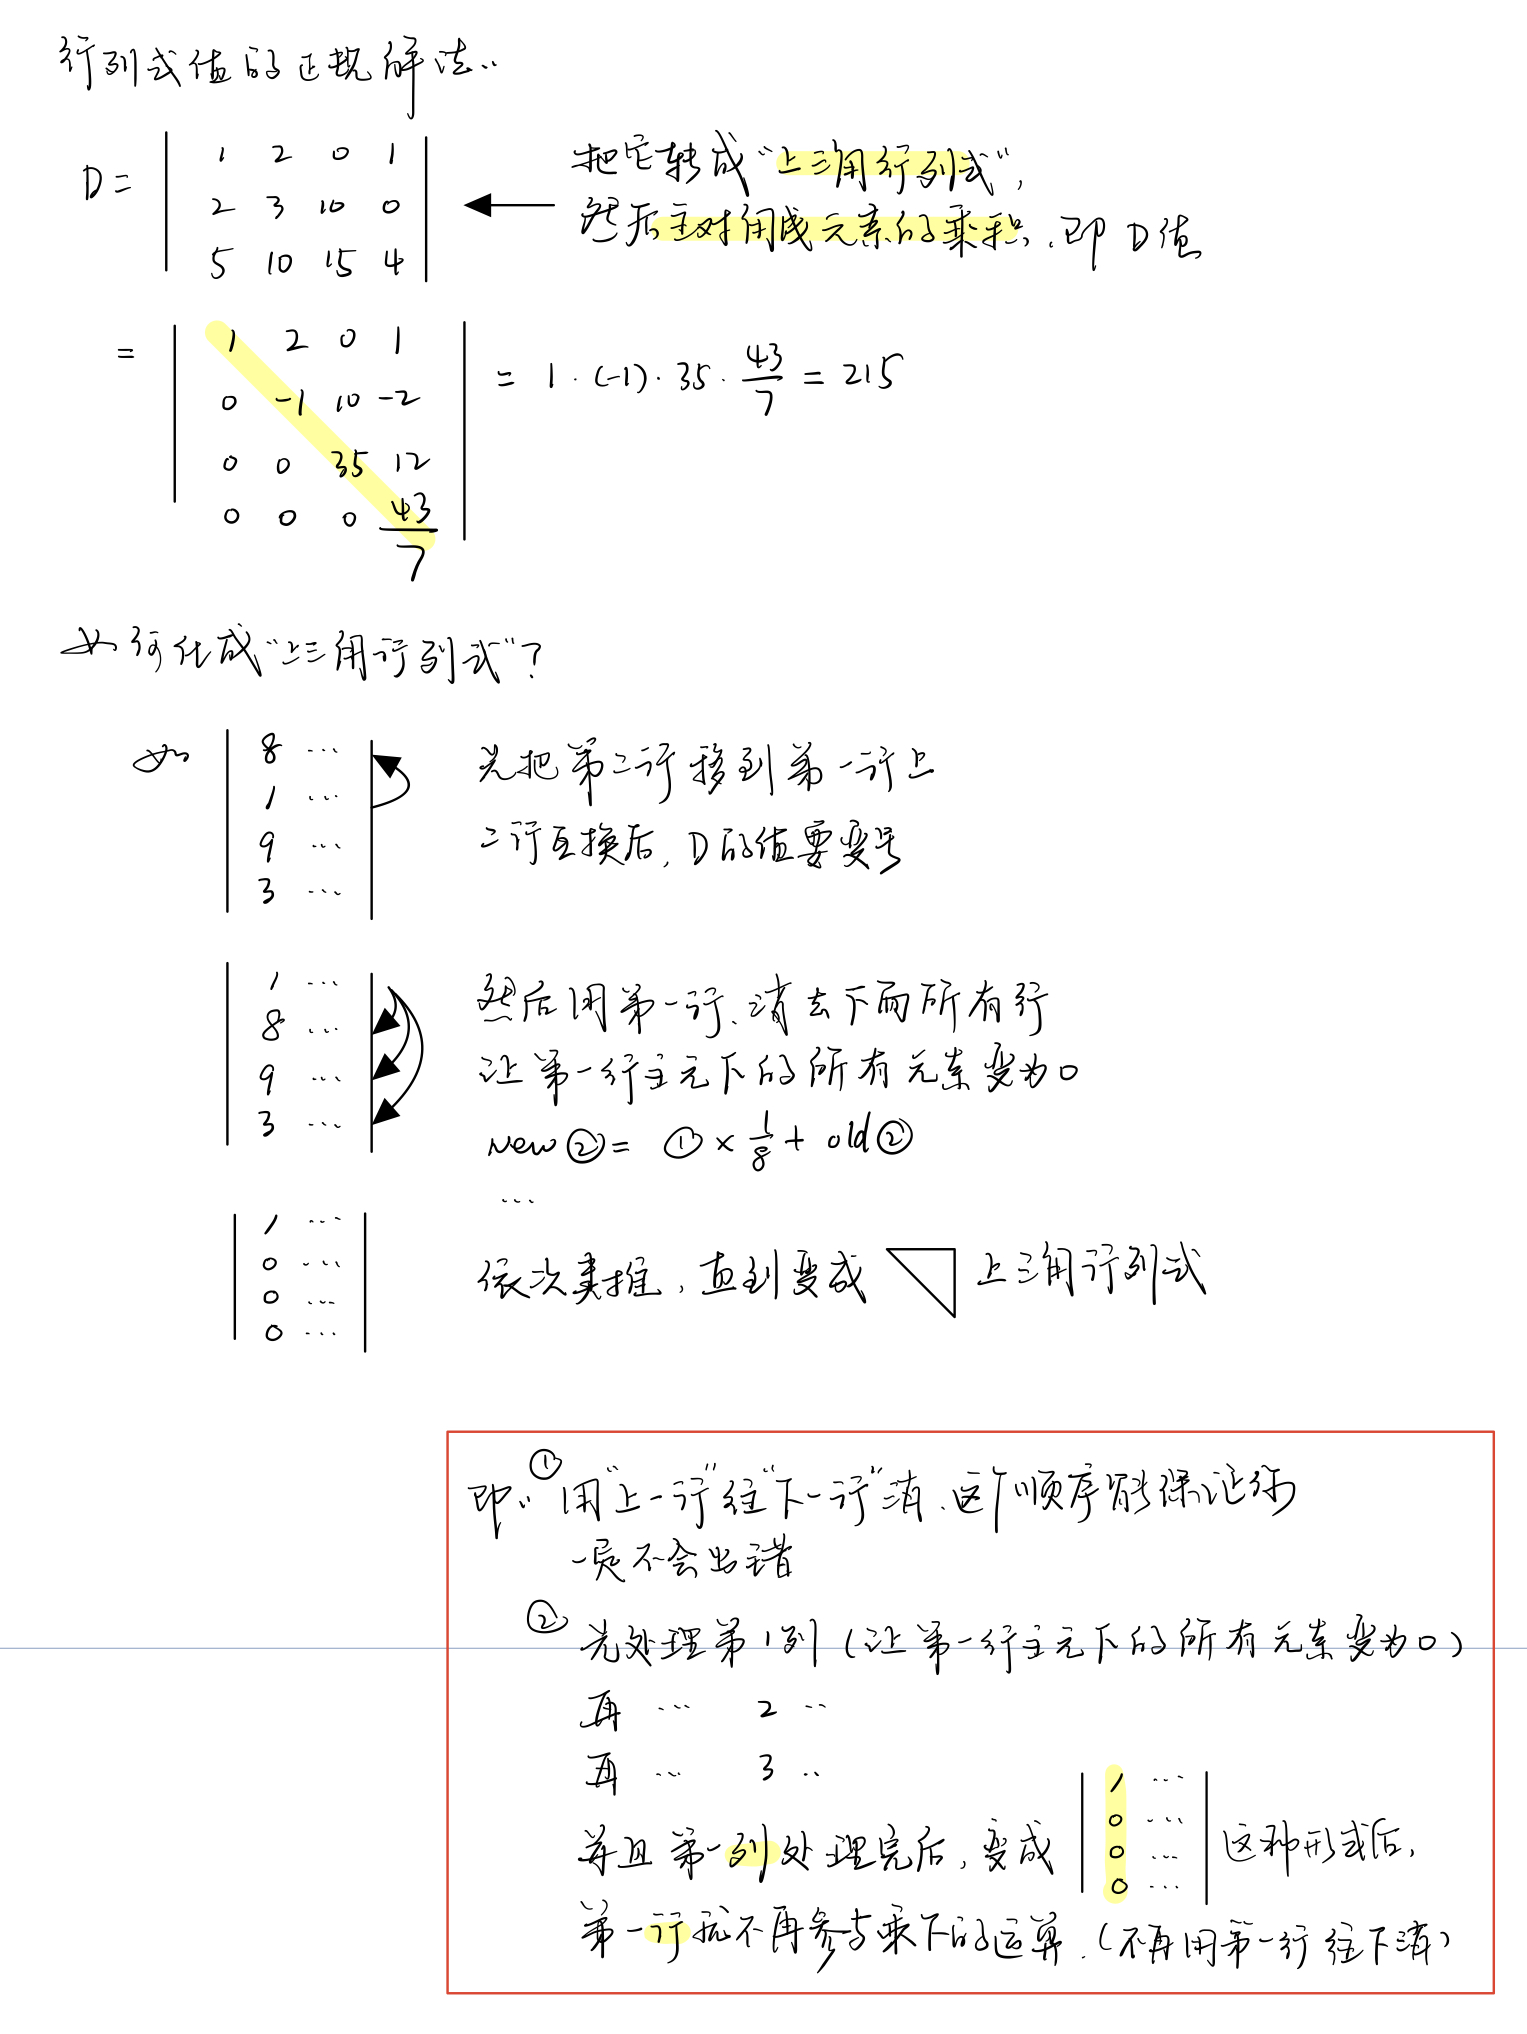 行列式值的正规解法..
D = | 1 2 0 1 |
| 2 3 10 0 |
| 5 10 15 4 |
把它转成"上三角行列式",
然后主对角线元素的乘积,即D值
= | 1 2 0 1 |
| 0 -1 10 -2 |
| 0 0 35 12 |
| 0 0 0 43/7 |
= 1 · (-1) · 35 · 43/7 = 215
如何化成"上三角行列式"?
如 | 8 ... |
| 1 ... |
| 9 ... |
| 3 ... |
先把第二行移到第一行上
二行互换后,D的值要变号
| 1 ... |
| 8 ... |
| 9 ... |
| 3 ... |
然后用第一行,消去下面所有行
让第一行主元下的所有元素变为0
new ② = ① × 1/8 + old ②
...
| 1 ... |
| 0 ... |
| 0 ... |
| 0 ... |
依次类推,直到变成 上三角行列式
即.. ① 用"上一行"往"下一行"消,这个顺序能保证你
一定不会出错
② 先处理第1列(让第一行主元下的所有元素变为0)
再 ... 2 ..
再 ... 3 ..
并且第一列处理完后,变成 | 1 ... | 这种形式后,
| 0 ... |
| 0 ... |
| 0 ... |
第一行就不再参与乘下的运算.(不再用第一行往下消)